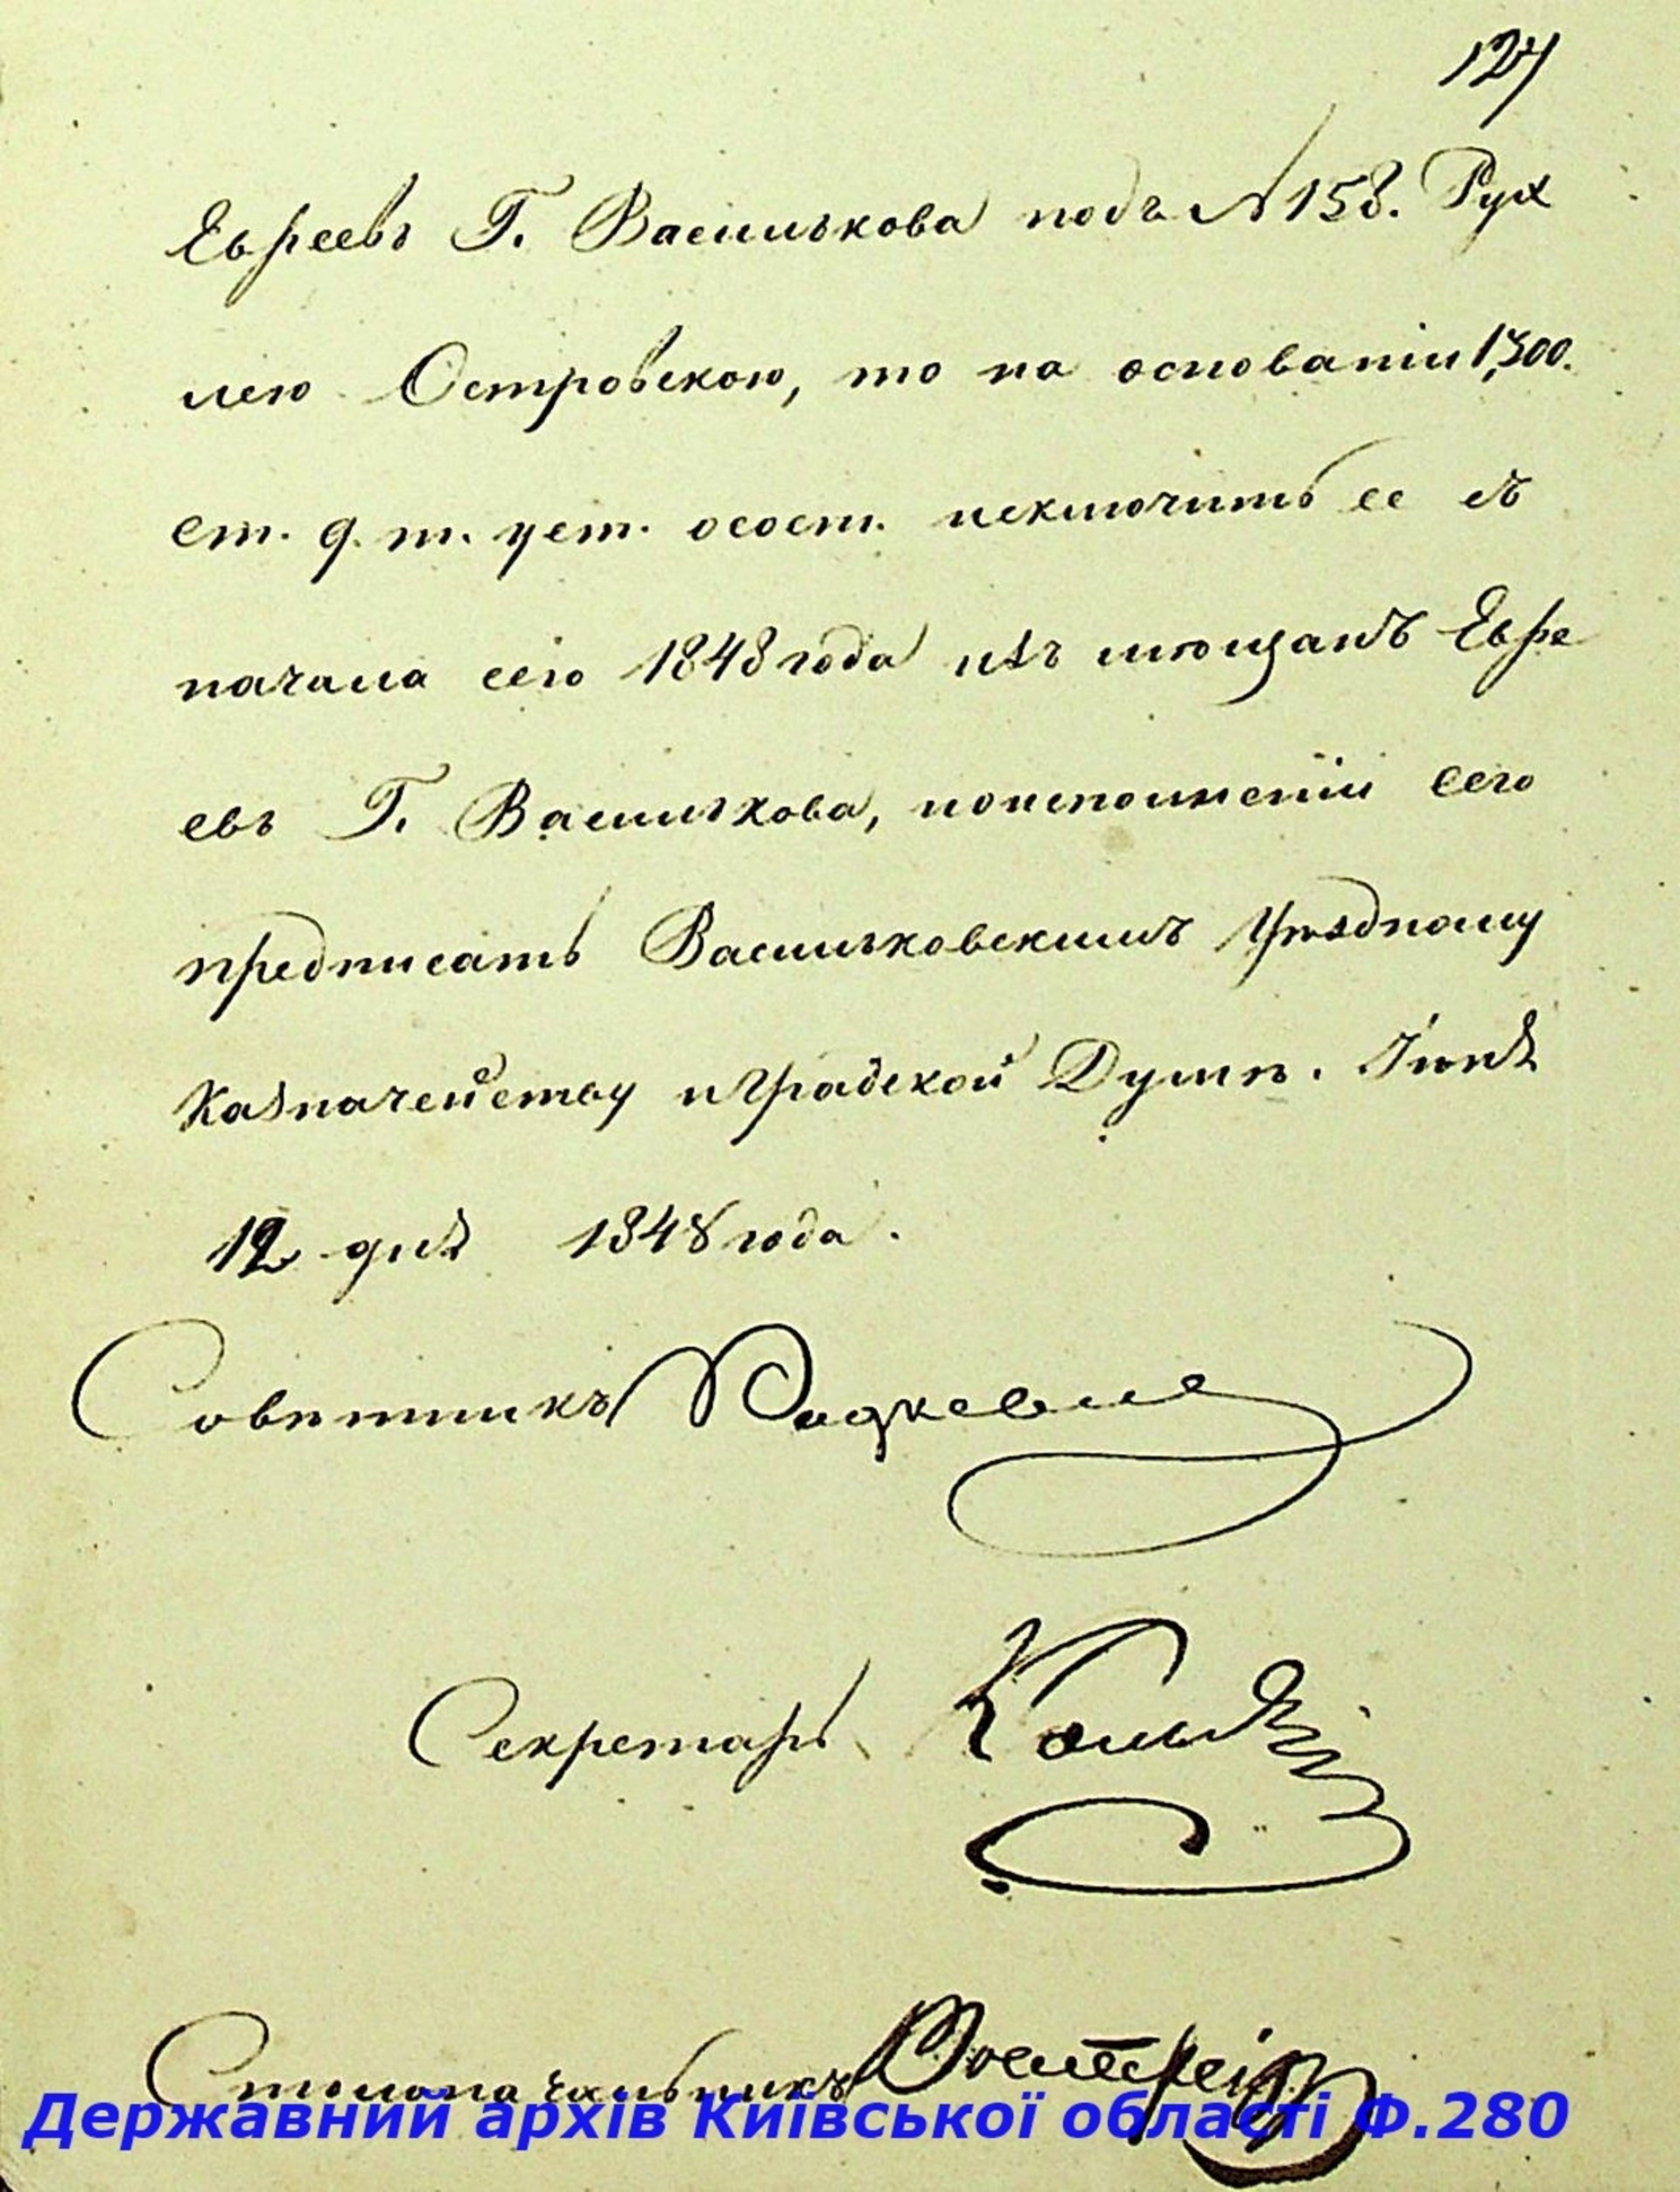 127
Евреевъ Г. Василькова подъ № 158. Рух
лею Островскою, то на основаніи 1,300.
ст. 9. т. уст. о сост. исключить ее съ
начала сего 1848 года изъ мѣщанъ Евре
евъ Г. Василькова, по исполненіи сего
предписать Васильковскимъ Уѣздному
Казначейству и Градской Думѣ. Іюня
12 дня 1848 года.
Совѣтникъ
Секретарь
Столоначальникъ
Державний архів Київської області Ф.280